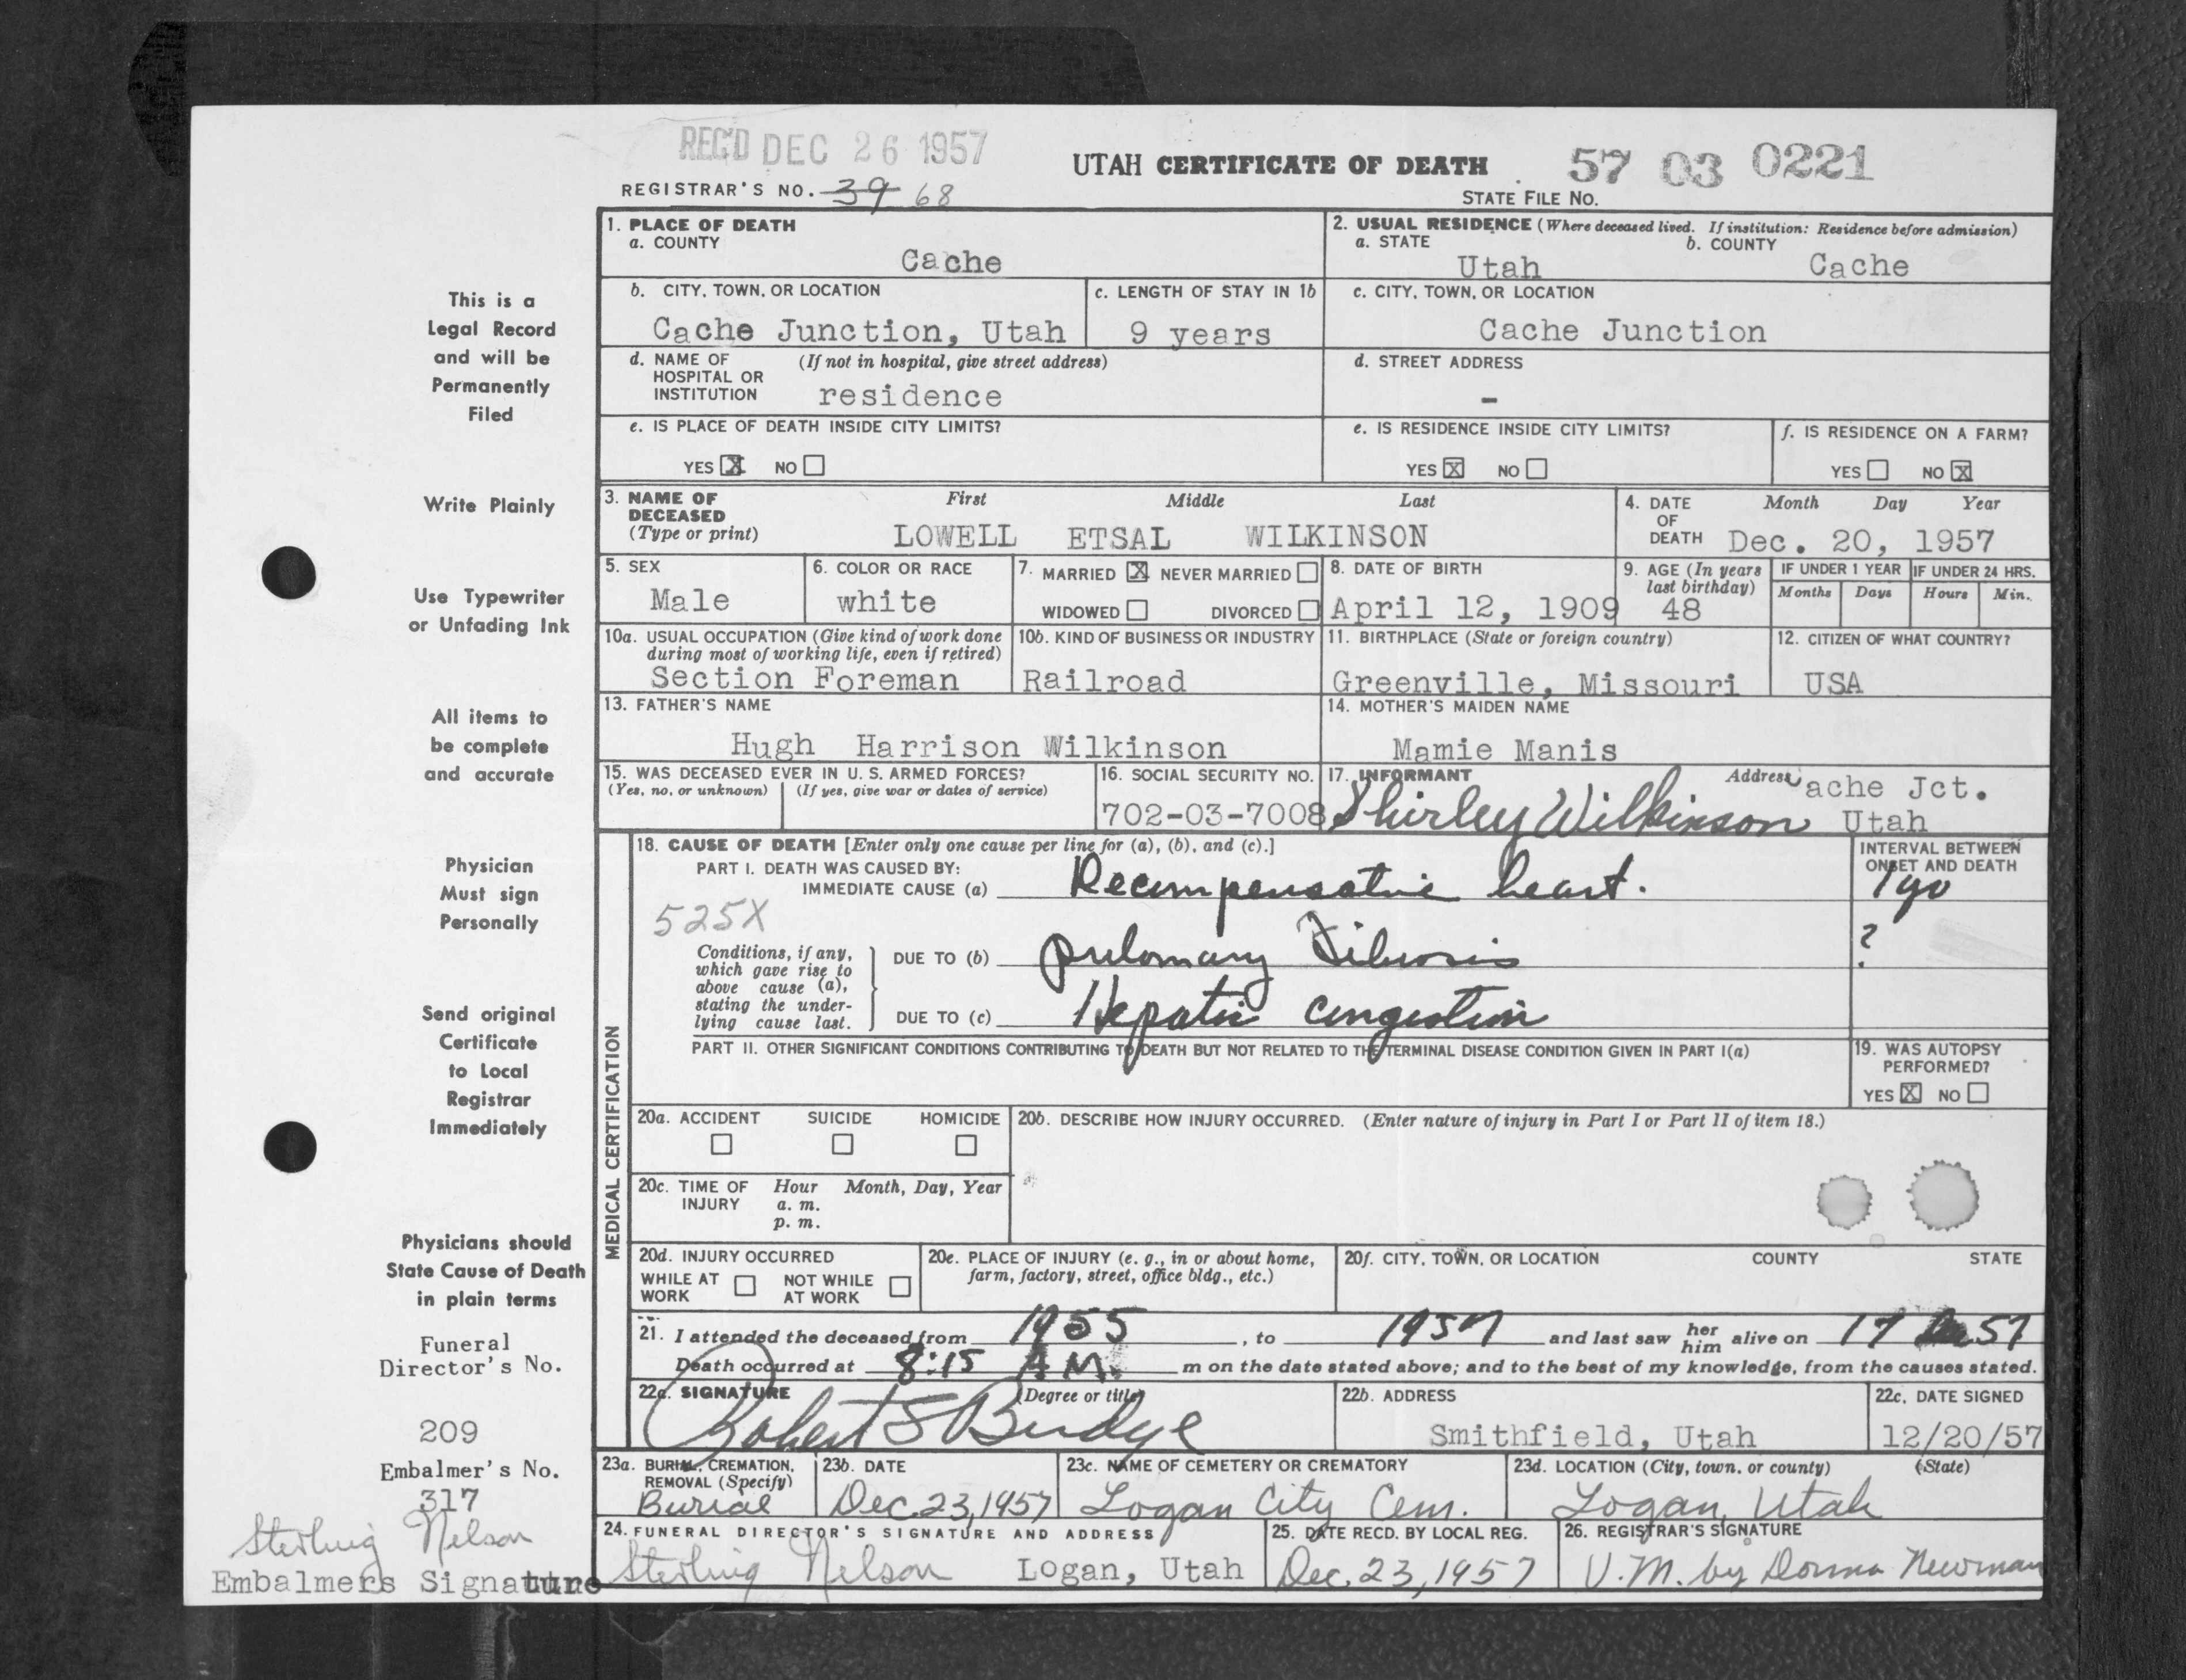 REC'D DEC 26 1957
UTAH CERTIFICATE OF DEATH 57 03 0221
REGISTRAR'S NO. 39 68
STATE FILE NO.
1. PLACE OF DEATH
a. COUNTY
Cache
2. USUAL RESIDENCE (Where deceased lived. If institution: Residence before admission)
a. STATE b. COUNTY
Utah Cache
b. CITY, TOWN, OR LOCATION
Cache Junction, Utah
c. LENGTH OF STAY IN 1b
9 years
c. CITY, TOWN, OR LOCATION
Cache Junction
d. NAME OF (If not in hospital, give street address)
HOSPITAL OR
INSTITUTION residence
d. STREET ADDRESS
-
e. IS PLACE OF DEATH INSIDE CITY LIMITS?
YES X NO
e. IS RESIDENCE INSIDE CITY LIMITS?
YES X NO
f. IS RESIDENCE ON A FARM?
YES NO X
3. NAME OF DECEASED (Type or print)
First Middle Last
LOWELL ETSAL WILKINSON
4. DATE OF DEATH
Month Day Year
Dec. 20, 1957
5. SEX
Male
6. COLOR OR RACE
white
7. MARRIED X NEVER MARRIED
WIDOWED DIVORCED
8. DATE OF BIRTH
April 12, 1909
9. AGE (In years last birthday)
48
IF UNDER 1 YEAR IF UNDER 24 HRS.
Months Days Hours Min.
10a. USUAL OCCUPATION (Give kind of work done
during most of working life, even if retired)
Section Foreman
10b. KIND OF BUSINESS OR INDUSTRY
Railroad
11. BIRTHPLACE (State or foreign country)
Greenville, Missouri
12. CITIZEN OF WHAT COUNTRY?
USA
13. FATHER'S NAME
Hugh Harrison Wilkinson
14. MOTHER'S MAIDEN NAME
Mamie Manis
15. WAS DECEASED EVER IN U. S. ARMED FORCES?
(Yes, no, or unknown) (If yes, give war or dates of service)
16. SOCIAL SECURITY NO.
702-03-7008
17. INFORMANT Address
Shirley Wilkinson Cache Jct.
Utah
MEDICAL CERTIFICATION
18. CAUSE OF DEATH [Enter only one cause per line for (a), (b), and (c).]
PART I. DEATH WAS CAUSED BY:
IMMEDIATE CAUSE (a) Decompensative heart.
INTERVAL BETWEEN
ONSET AND DEATH
525X
Conditions, if any,
which gave rise to
above cause (a),
stating the under-
lying cause last.
DUE TO (b) pulomary Fibrosis
?
DUE TO (c) Hepatic congestion
PART II. OTHER SIGNIFICANT CONDITIONS CONTRIBUTING TO DEATH BUT NOT RELATED TO THE TERMINAL DISEASE CONDITION GIVEN IN PART I(a)
19. WAS AUTOPSY
PERFORMED?
YES X NO
20a. ACCIDENT SUICIDE HOMICIDE
20b. DESCRIBE HOW INJURY OCCURRED. (Enter nature of injury in Part I or Part II of item 18.)
20c. TIME OF INJURY
Hour Month, Day, Year
a. m.
p. m.
20d. INJURY OCCURRED
WHILE AT WORK NOT WHILE AT WORK
20e. PLACE OF INJURY (e. g., in or about home,
farm, factory, street, office bldg., etc.)
20f. CITY, TOWN, OR LOCATION COUNTY STATE
21. I attended the deceased from 1955, to 1957 and last saw her him alive on 17 57
Death occurred at 8:15 A M. m on the date stated above; and to the best of my knowledge, from the causes stated.
22a. SIGNATURE (Degree or title)
Robert S Budge
22b. ADDRESS
Smithfield, Utah
22c. DATE SIGNED
12/20/57
23a. BURIAL, CREMATION,
REMOVAL (Specify)
Burial
23b. DATE
Dec. 23, 1957
23c. NAME OF CEMETERY OR CREMATORY
Logan City Cem.
23d. LOCATION (City, town, or county) (State)
Logan, Utah
24. FUNERAL DIRECTOR'S SIGNATURE AND ADDRESS
Sterling Nelson Logan, Utah
25. DATE RECD. BY LOCAL REG.
Dec. 23, 1957
26. REGISTRAR'S SIGNATURE
V. M. by Donna Newman
This is a
Legal Record
and will be
Permanently
Filed
Write Plainly
Use Typewriter
or Unfading Ink
All items to
be complete
and accurate
Physician
Must sign
Personally
Send original
Certificate
to Local
Registrar
Immediately
Physicians should
State Cause of Death
in plain terms
Funeral
Director's No.
209
Embalmer's No.
317
Sterling Nelson
Embalmers Signature